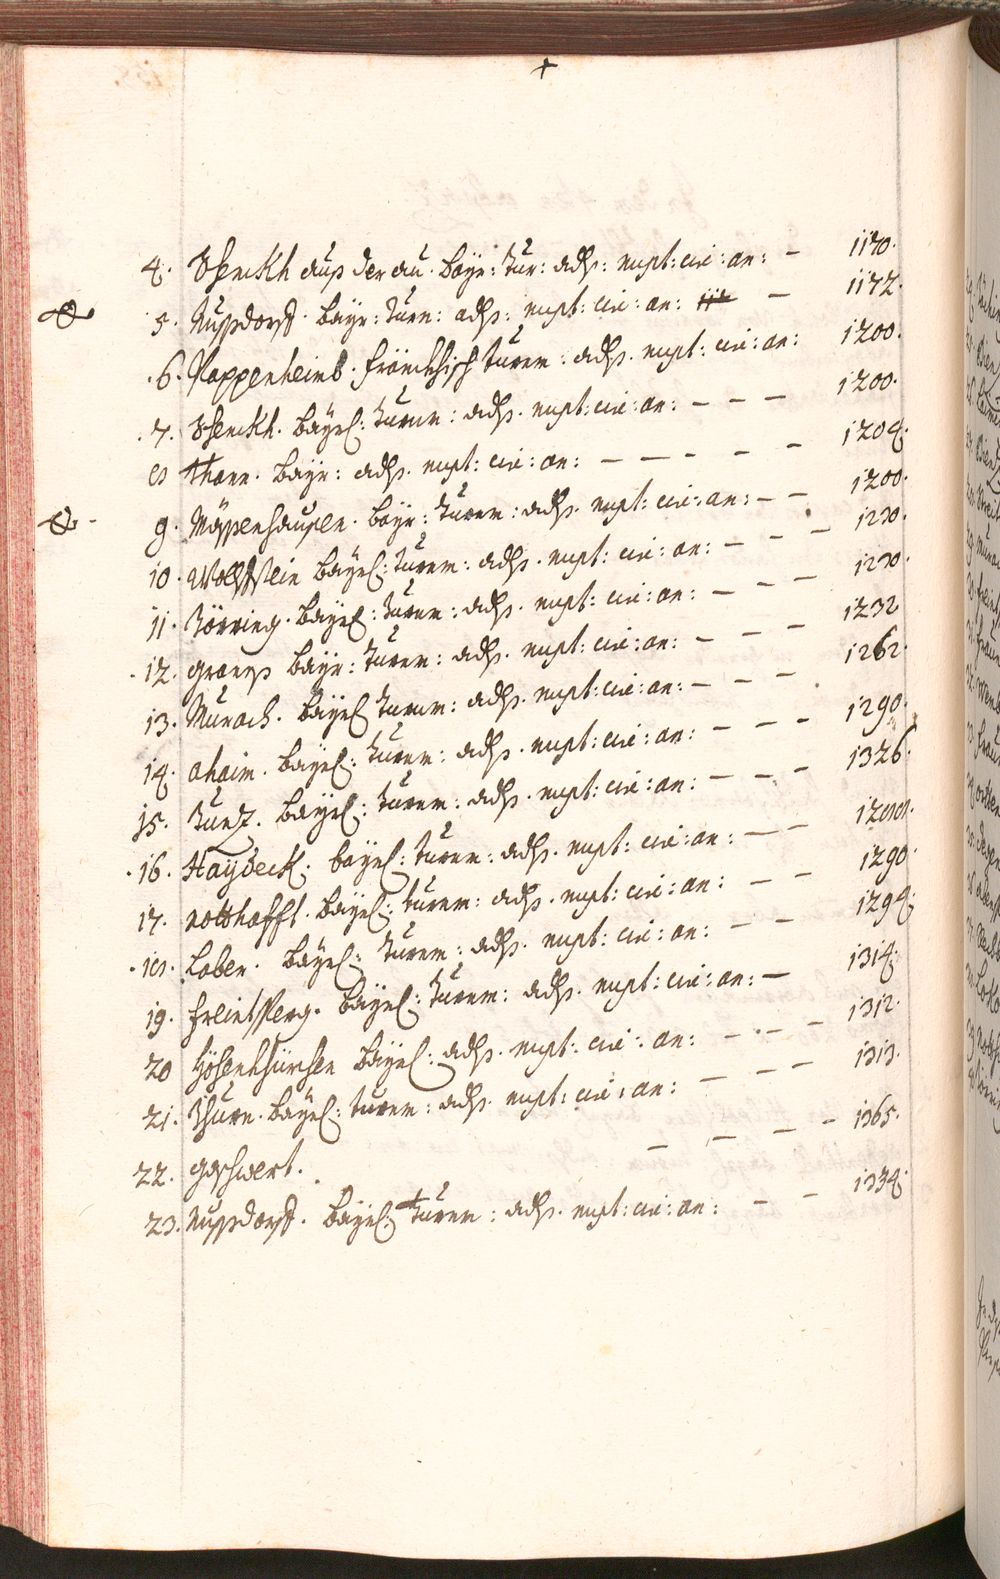 +
4. Schenckh auß der au. Bayr: tur: adß: nupt: cir: an: — 1170.
5. Nussdorff. Bayr: turn: adß: nupt: cir: an: — 1172.
.6. Pappenheimb. fränckhisch turnm: adß. nupt: cir: an: 1200.
.7. Schenckh. Bayrl: turnm: adß. nupt: cir: an: — — — 1200.
8 Thann. Bayr: adß. nupt: cir: an: — — — — — 1204.
9. Mässenhausen. Bayr: turnm: adß. nupt: cir: an: — — 1200.
10. Wolffstein Bayrl: turnm: adß. nupt: cir: an: — — — 1230.
11. Törring. Bayrl: turnm: adß. nupt: cir: an: — — — 1230.
.12. granß Bayr: turnm: adß. nupt: cir: an: — — — 1232
13. Murach. Bayrl turnm: adß. nupt: cir: an: — — — 1262.
14. ahaim. Bayrl: turnm: adß. nupt: cir: an: — — — 1290.
15. Kuntz. Bayrl: turnm: adß. nupt: cir: an: — — — 1326.
.16. Haybeck. Bayrl: turnm: adß. nupt: cir: an: — — 1288.
17. notthafft. Bayrl: turnm: adß. nupt: cir: an: — — 1290.
.18. Laben. Bayrl: turnm: adß. nupt: cir: an: — — 1294.
19. freintsperg. Bayrl: turnm: adß. nupt: cir: an: — 1314.
20 Hösenkhürchen Bayrl: adß. nupt: cir: an: — — — 1312.
21. Thurn. Bayrl: turnm: adß. nupt: cir: an: — — — 1313.
22. gaschwert. — — — — 1365.
23. Nussdorff. Bayrl: turnm: adß. nupt: cir: an: — — 1334.